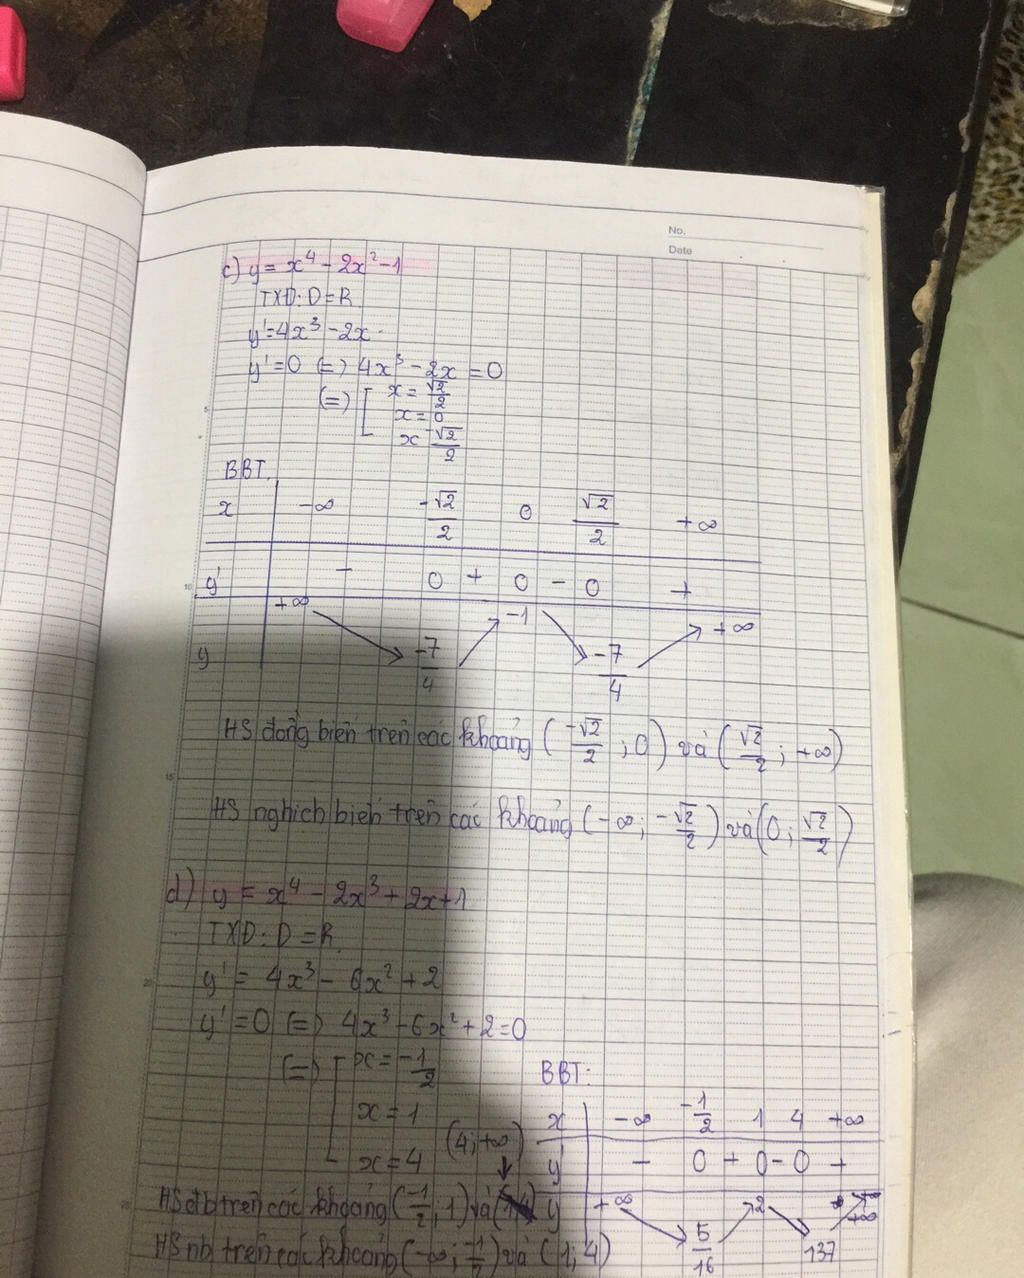 No.
Date
c) y = x⁴ - 2x² - 1
TXD: D = R
y' = 4x³ - 2x
y' = 0 (=) 4x³ - 2x = 0
(=) [ x = √2/2
x = 0
x = -√2/2
BBT.
x -∞ -√2/2 0 √2/2 +∞
y' - 0 + 0 - 0 +
y +∞ -7/4 -1 -7/4 +∞
HS đồng biến trên các khoảng (-√2/2 ; 0) và (√2/2 ; +∞)
HS nghịch biến trên các khoảng (-∞ ; -√2/2) và (0 ; √2/2)
d) y = x⁴ - 2x³ + 2x + 1
TXD: D = R
y' = 4x³ - 6x² + 2
y' = 0 (=) 4x³ - 6x² + 2 = 0
(=) [ x = -1/2
x = 1
x = 4
BBT:
x -∞ -1/2 1 4 +∞
y' - 0 + 0 - 0 +
y +∞ 5/16 2 137 +∞
(4 ; +∞)
HS đb trên các khoảng (-1/2 ; 1) và
HS nb trên các khoảng (-∞ ; -1/2) và (1 ; 4)
5
10
15
20